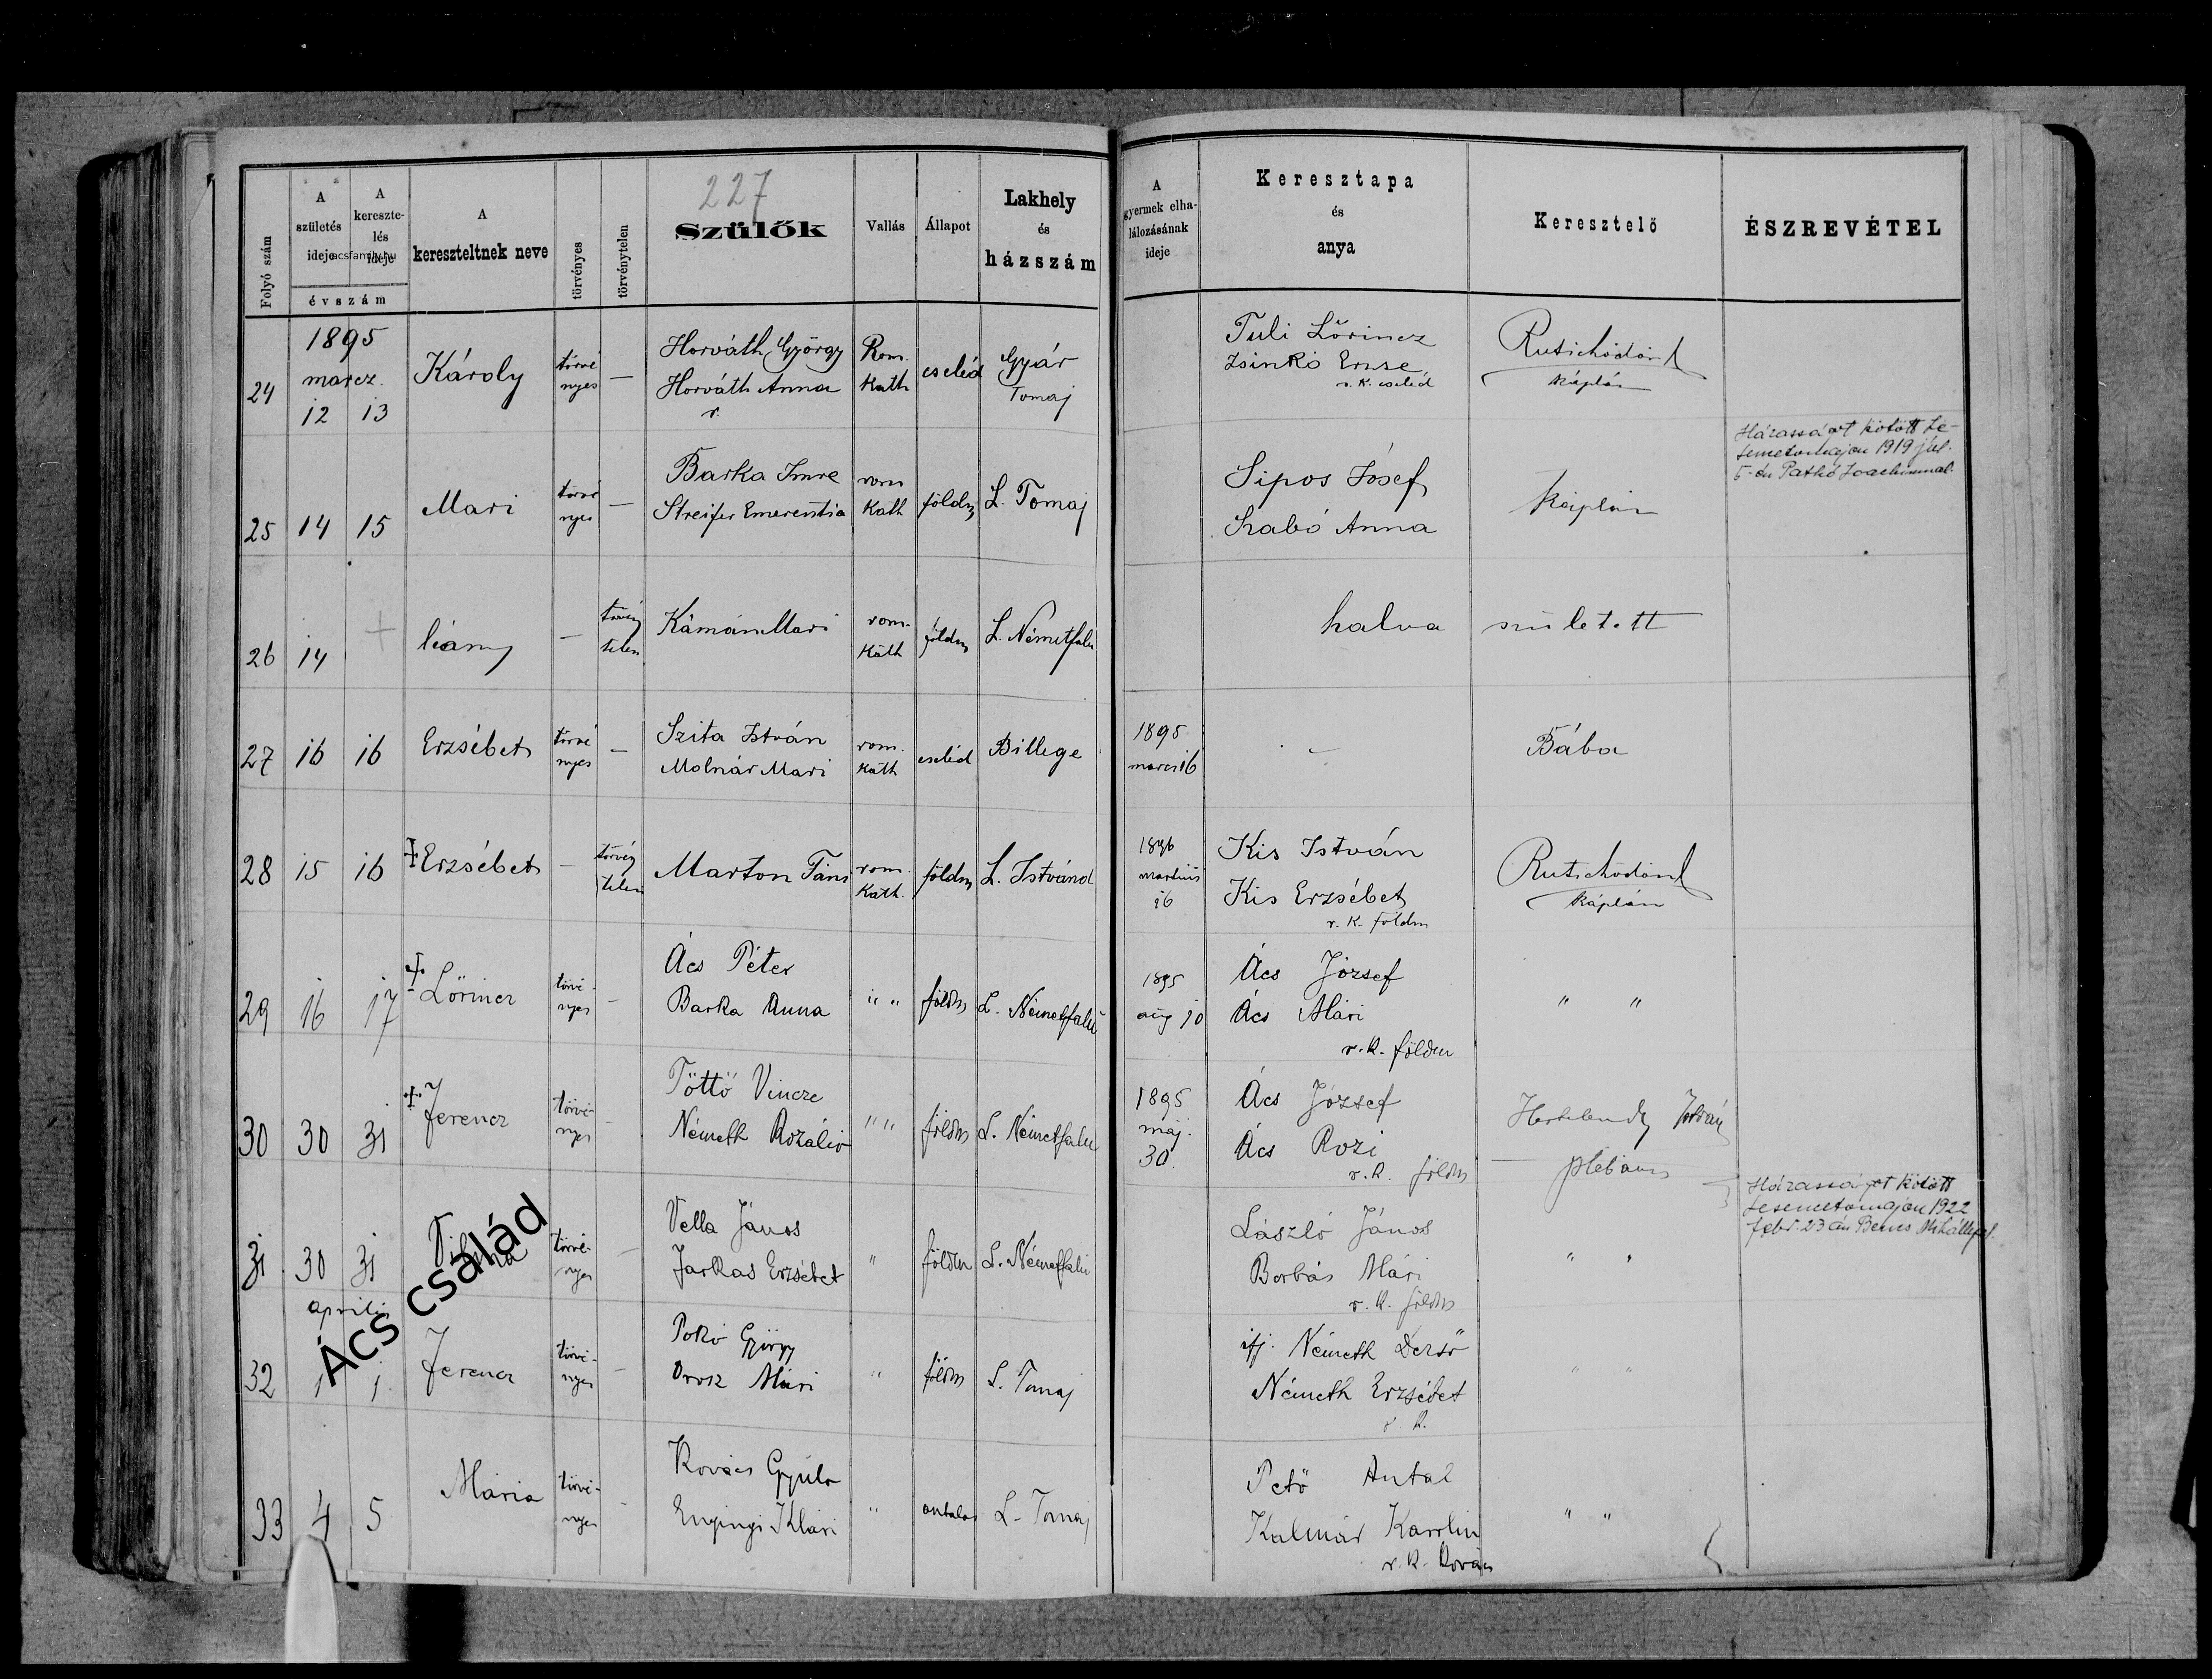 227
Folyó szám
A születés ideje
A keresztelés ideje
évszám
acsfamily.hu
A kereszteltnek neve
törvényes
törvénytelen
Szülők
Vallás
Állapot
Lakhely és házszám
A gyermek elhalálozásának ideje
Keresztapa és anya
Keresztelő
ÉSZREVÉTEL
1895
marcz.
24 12 13 Károly törvényes — Horváth György Rom. Kath cseléd Gyár Tomaj Tuli Lőrincz
Horváth Anna
r.
Zsinkó Ernse
r. K. cseléd
káplán
25 14 15 Mari törvényes — Barka Imre rom Kath földm L. Tomaj Sipos Jósef Káplán
Streifer Emerentia
Szabó Anna
Házasságot kötött Le-
sencetomajon 1919 jul.
5-én Patkó Joachimmal
26 14 + leány — törvénytelen Kámán Mari rom. Kath földm L. Németfalu halva született
27 16 16 Erzsébet törvényes — Szita István rom. Kath cseléd Billege 1895 marcz 16 — Bába
Molnár Mari
28 15 16 Erzsébet — törvénytelen Marton Fáni rom. Kath. földm L. Istvánd 1896 martius 16 Kis István
Kis Erzsébet
r. K. földm
káplán
29 16 17 Lőrincz törvényes — Ács Péter " " földm L. Németfalu 1895 aug 10 Ács József " "
Barka Anna
Ács Mári
r. K. földm
30 30 31 Ferencz törvényes — Töttő Vincze " " földm L. Németfalu 1895 máj. 30. Ács József Hertelendy István
Németh Rozália
Ács Rozi
r. K. földm
plebános
31 30 31 törvényes — Vella János " földm L. Németfalu László János " "
Farkas Erzsébet
Borbás Mári
r. K. földm
Házasságot kötött
Lesencetomajon 1922
febr. 23 án Bencs Mihállyal.
április
32 1 1 Ferencz törvényes — Pokó György " földm L. Tomaj ifj. Németh Dezső " "
Orosz Mári
Németh Erzsébet
r. K.
33 4 5 Mária törvényes — Kovács Gyula " L. Tomaj Pető Antal " "
Enyingi Klári
Kalmár Karolin
r. K. Kovács
Ács család